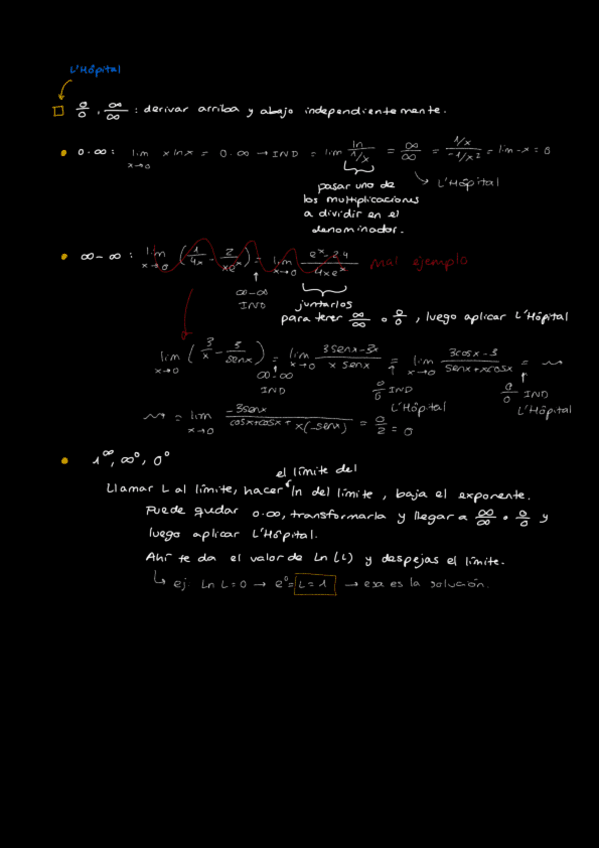 L'Hôpital
0/0, ∞/∞ : derivar arriba y abajo independientemente.
0·∞: lim x→0 x ln x = 0·∞ → IND = lim ln/(1/x) = ∞/∞ = (1/x)/(-1/x²) = lim -x = 0
L'Hôpital
pasar uno de
los multiplicaciones
a dividir en el
denominador.
∞-∞ : lim x→0 (1/4x - 2/xeˣ) = lim x→0 (eˣ-24)/4xeˣ Mal ejemplo
∞-∞
IND
juntarlos
para tener ∞/∞ o 0/0, luego aplicar L'Hôpital
lim x→0 (3/x - 3/senx) = lim x→0 (3senx-3x)/(x senx) = lim x→0 (3cosx-3)/(senx+xcosx) = ⇝
∞-∞ IND
0/0 IND L'Hôpital
0/0 IND L'Hôpital
⇝ = lim x→0 -3senx/(cosx+cosx+x(-senx)) = 0/2 = 0
1^∞, ∞⁰, 0⁰
el límite del
Llamar L al límite, hacer ln del límite, baja el exponente.
Puede quedar 0·∞, transformarla y llegar a ∞/∞ o 0/0 y
luego aplicar L'Hôpital.
Ahí te da el valor de Ln(L) y despejas el límite.
↳ ej: Ln L = 0 → e⁰ = L = 1 → esa es la solución.